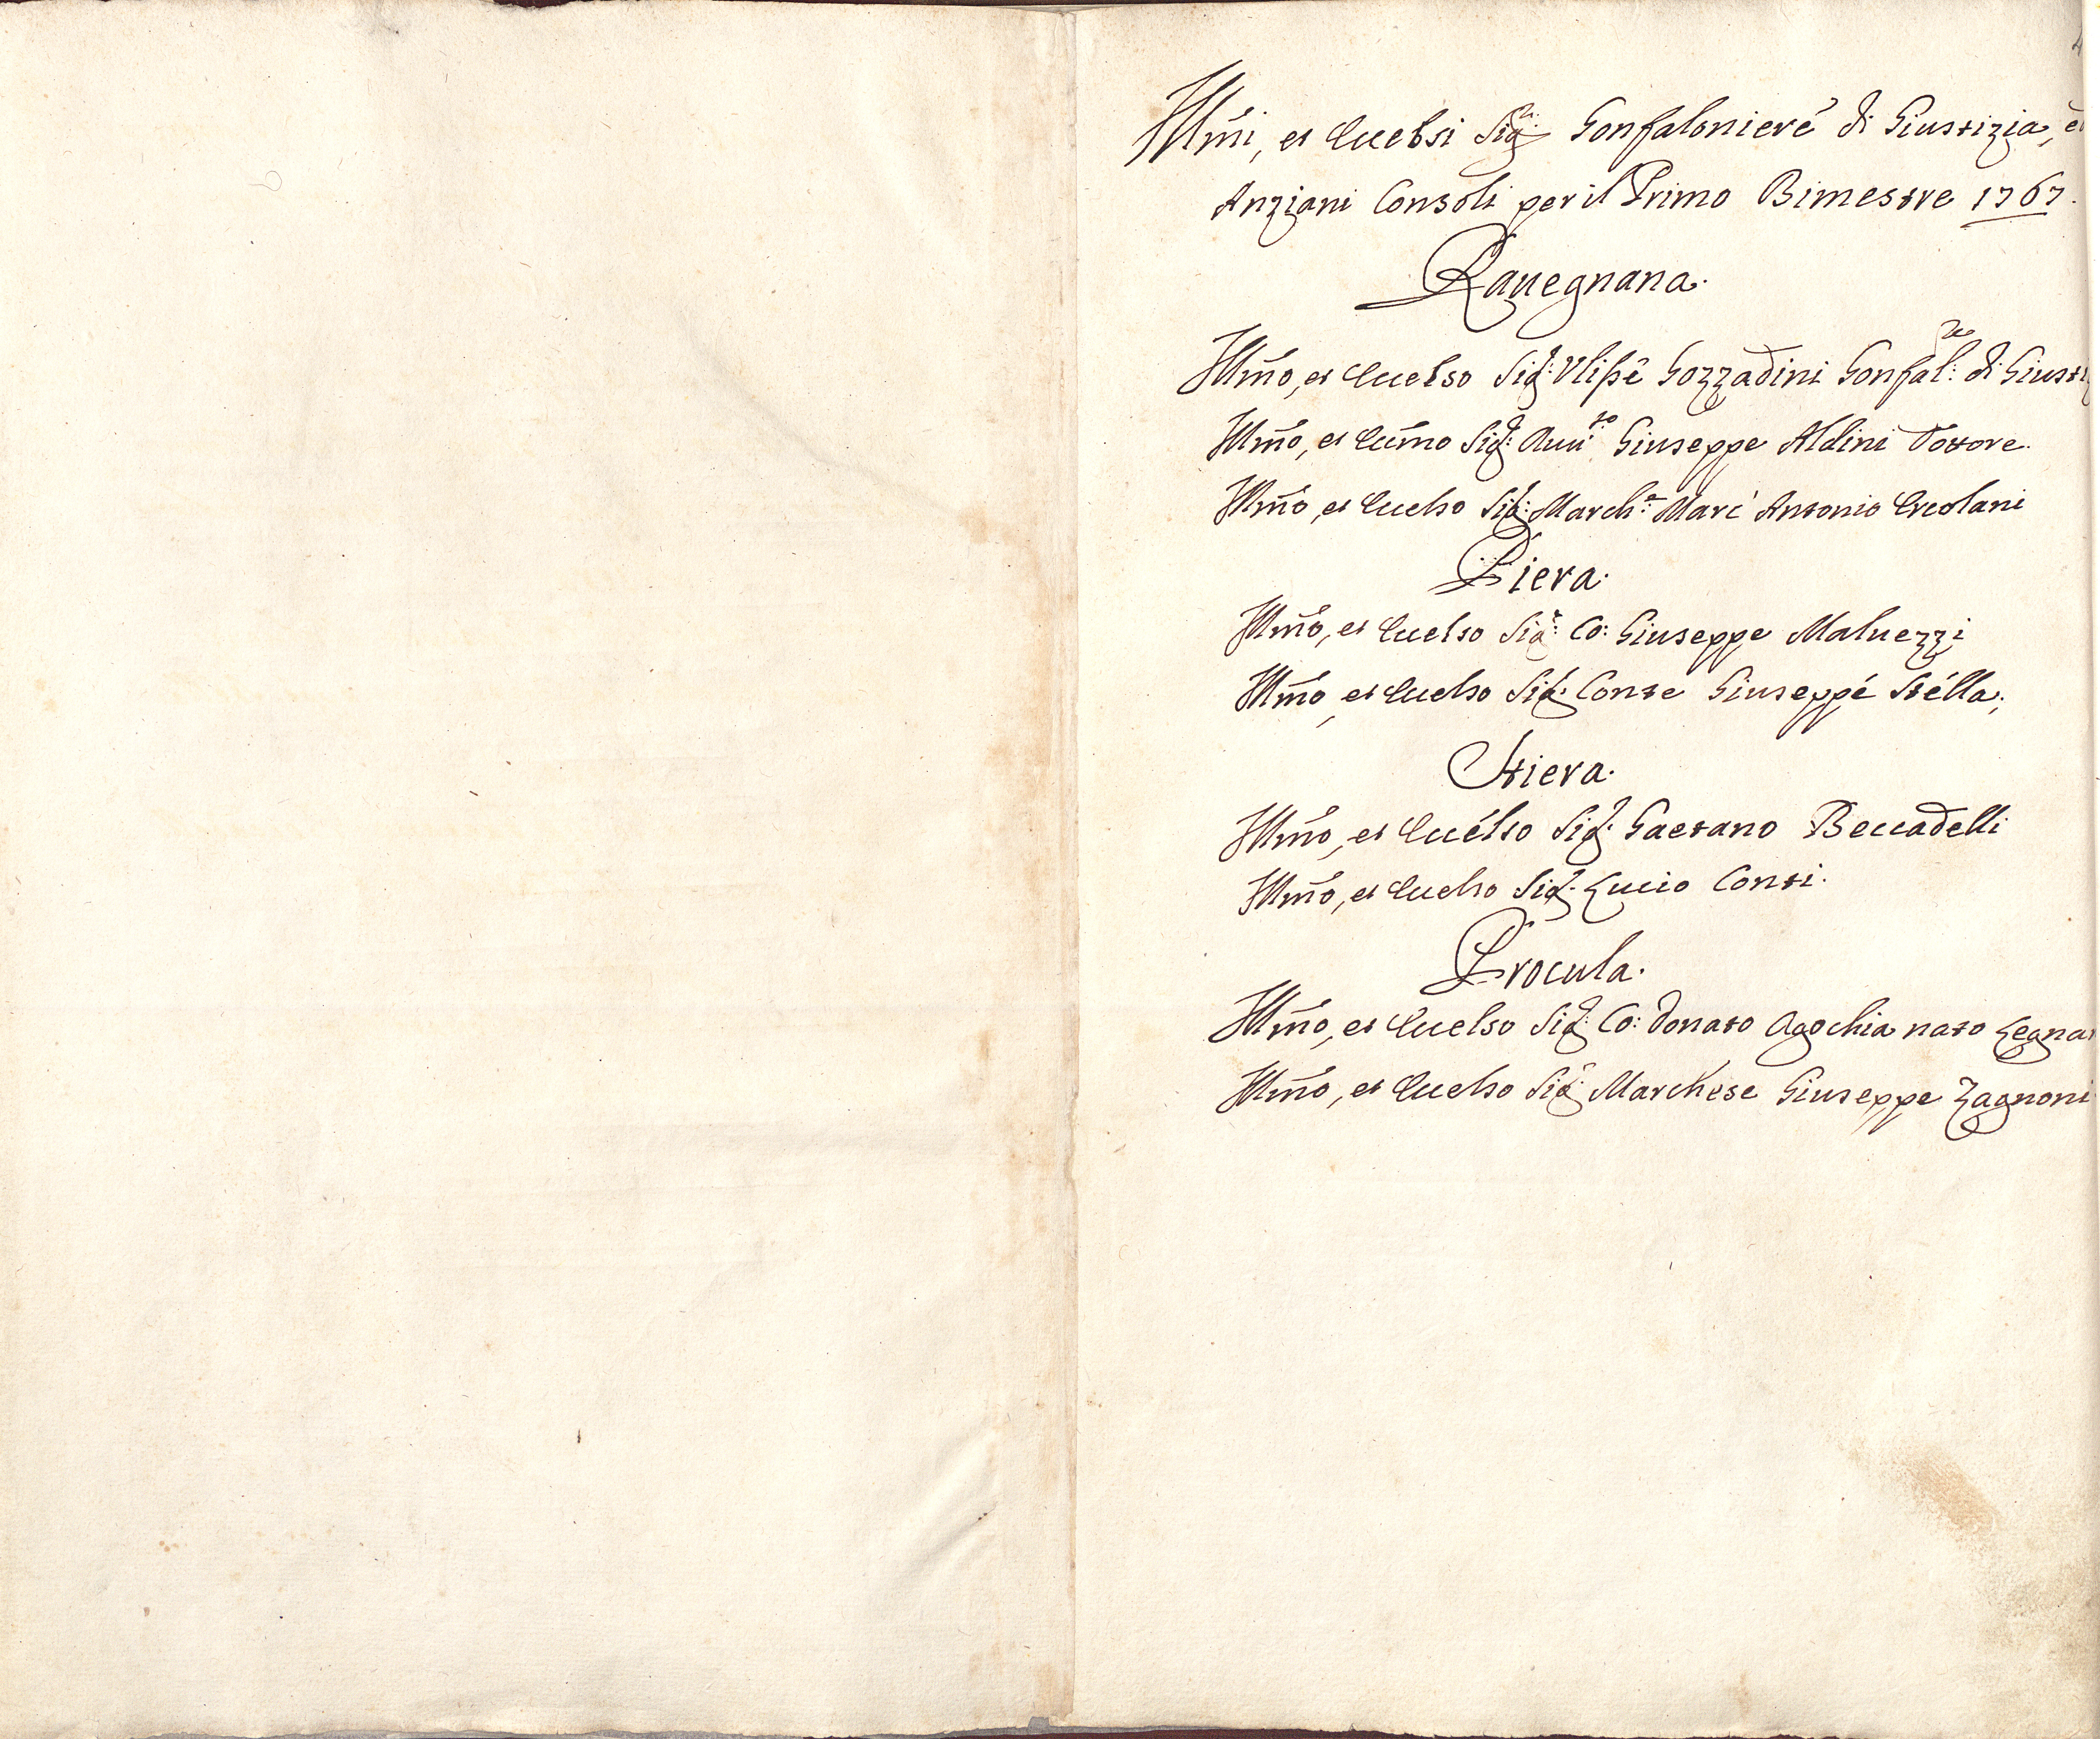 Illm̃i, et Eccelsi Sig.ri Gonfaloniere di Giustizia, e
Anziani Consoli per il Primo Bimestre 1767.
Rauegnana.
Illm̃o, et Eccelso Sig.r Vlisse Gozzadini Gonfal.re di Giusti
Illm̃o, et Eccm̃o Sig.r Auu.to Giuseppe Aldini Dottore
Illm̃o, et Eccelso Sig.r March.e Marc' Antonio Ercolani
Piera.
Illm̃o, et Eccelso Sig.r Co: Giuseppe Maluezzi
Illm̃o, et Eccelso Sig.r Conte Giuseppe Stella.
Stiera.
Illm̃o, et Eccelso Sig.r Gaetano Beccadelli
Illm̃o, et Eccelso Sig.r Lucio Conti.
Procula.
Illm̃o, et Eccelso Sig.r Co: Donato Agochia nato Legna
Illm̃o, et Eccelso Sig.r Marchese Giuseppe Zagnoni